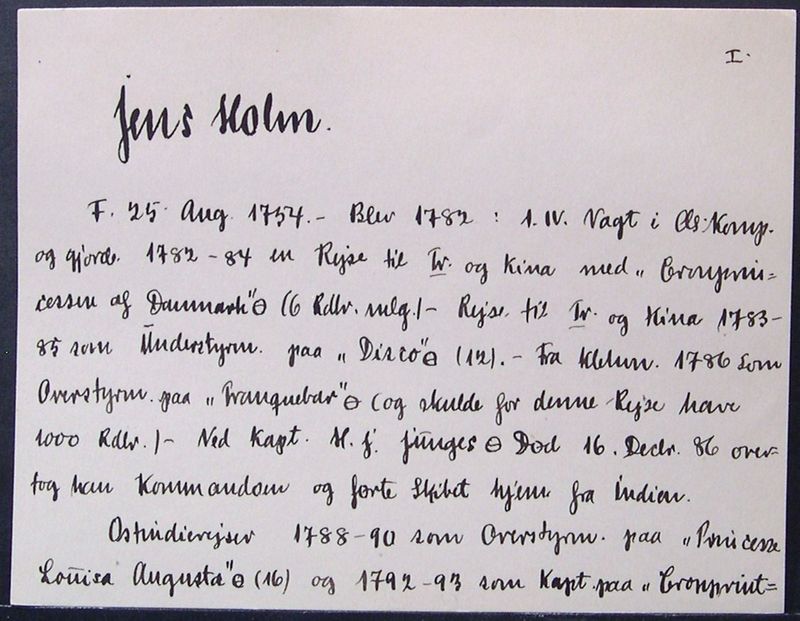 I.
Jens Holm.
F. 25 Aug. 1754. - Blev 1782 : 1. IV. Vagt i As: Komp.
og gjorde 1782-84 en Rejse til Tr. og Kina med „Cronprin=
cessen af Danmark" ⊖ (6 Rdlr. mlg.) - Rejse til Tr. og Kina 1783-
85 som Understyrm. paa „Disco" ⊖ (12). - Fra Kbhvn. 1786 som
Overstyrm. paa „Tranquebar" ⊖ (og skulde for denne Rejse have
1000 Rdlr.) - Ved Kapt. H. J. Junges ⊖ Død 16. Decbr. 86 over=
tog han Kommandoen og førte Skibet hjem fra Indien.
Ostindierejser 1788-90 som Overstyrm. paa „Princesse
Louisa Augusta" ⊖ (16) og 1792-93 som Kapt. paa „Cronprint=